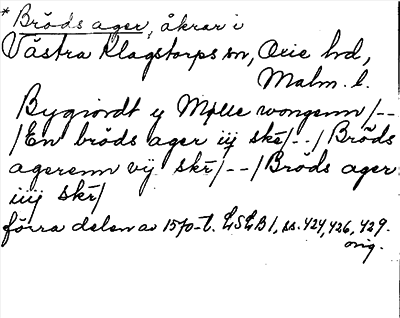 * Bröds ager, åkrar i
Västra Klagstorps sn, Oxie hd,
Malm. l.
Bygiordt y Mølle wongenn/--
/En bröds ager iij skr̄/--/Bröds
agerenn vij skr̄/--/Bröds ager
iiij skr̄/
förra delen av 1570-t. LSLB1, ss. 424, 426, 429.
orig.